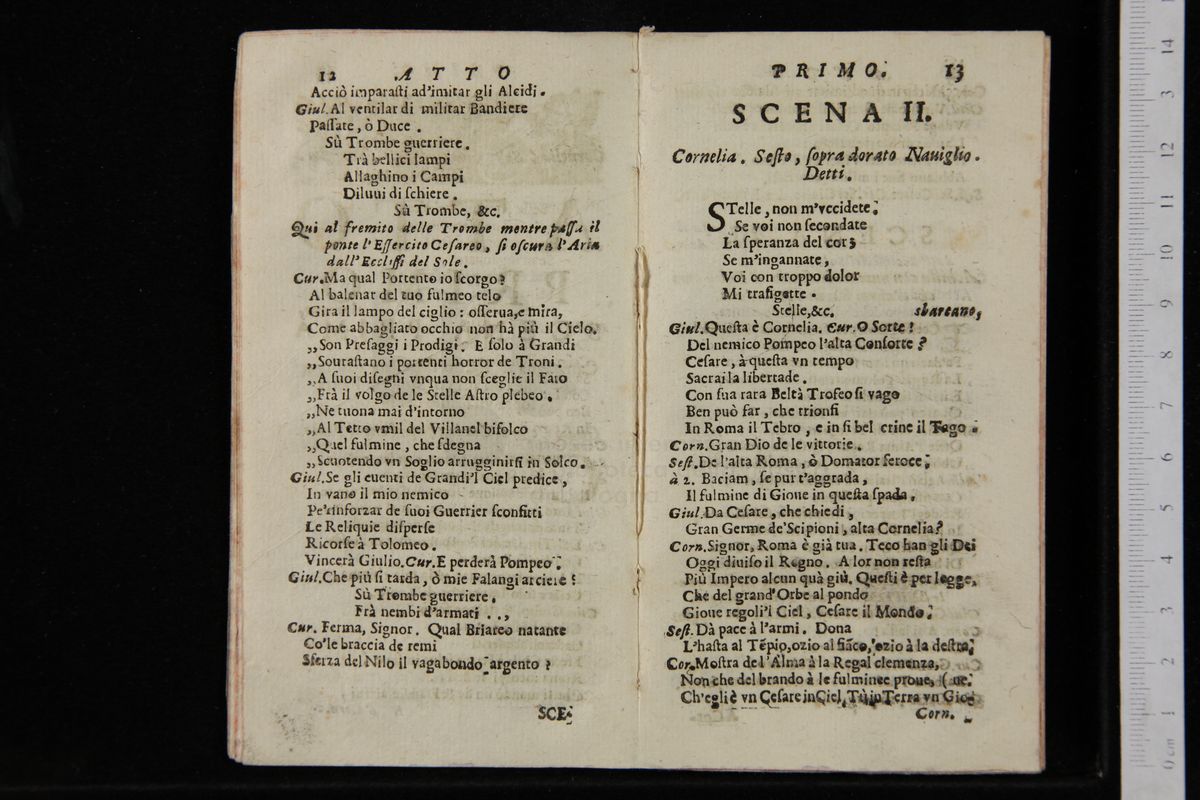 12 ATTO
Acciò imparaſti ad'imitar gli Alcidi.
Giul. Al ventilar di militar Bandiere
Paſſate, ò Duce.
Sù Trombe guerriere.
Trà bellici lampi
Allaghino i Campi
Diluui di ſchiere.
Sù Trombe, &c.
Qui al fremito delle Trombe mentre paſſa il
ponte l'Eſſercito Ceſareo, ſi oſcura l'Aria
dall'Eccliſſi del Sole.
Cur. Ma qual Portento io ſcorgo?
Al balenar del tuo fulmeo telo
Gira il lampo del ciglio: oſſerua, e mira,
Come abbagliato occhio non hà più il Cielo.
„Son Preſaggi i Prodigi. E ſolo à Grandi
„Souraſtano i portenti horror de Troni.
„A ſuoi diſegni vnqua non ſceglie il Fato
„Frà il volgo de le Stelle Aſtro plebeo.
„Ne tuona mai d'intorno
„Al Tetto vmil del Villanel bifolco
„Quel fulmine, che ſdegna
„Scuotendo vn Soglio arrugginirſi in Solco.
Giul. Se gli euenti de Grandi'l Ciel predice,
In vano il mio nemico
Pe'rinforzar de ſuoi Guerrier ſconfitti
Le Reliquie diſperſe
Ricorſe à Tolomeo.
Vincerà Giulio. Cur. E perderà Pompeo.
Giul. Che più ſi tarda, ò mie Falangi arciere?
Sù Trombe guerriere.
Frà nembi d'armati . . ,
Cur. Ferma, Signor. Qual Briareo natante
Co'le braccia de remi
Sferza del Nilo il vagabondo argento?
SCE.
PRIMO. 13
SCENA II.
Cornelia. Seſto, ſopra dorato Nauiglio.
Detti.
STelle, non m'vccidete.
Se voi non ſecondate
La ſperanza del cor;
Se m'ingannate,
Voi con troppo dolor
Mi trafigette.
Stelle, &c. sbarcano,
Giul. Queſta è Cornelia. Cur. O Sorte!
Del nemico Pompeo l'alta Conſorte?
Ceſare, à queſta vn tempo
Sacrai la libertade.
Con ſua rara Beltà Trofeo ſi vago
Ben può far, che trionfi
In Roma il Tebro, e in ſi bel crine il Tago.
Corn. Gran Dio de le vittorie.
Seſt. De l'alta Roma, ò Domator feroce,
à 2. Baciam, ſe pur t'aggrada,
Il fulmine di Gioue in queſta ſpada.
Giul. Da Ceſare, che chiedi,
Gran Germe de'Scipioni, alta Cornelia?
Corn. Signor, Roma è già tua. Teco han gli Dei
Oggi diuiſo il Regno. A lor non reſta
Più Impero alcun quà giù. Queſti è per legge,
Che del grand'Orbe al pondo
Gioue regoli'l Ciel, Ceſare il Mondo.
Seſt. Dà pace à l'armi. Dona
L'haſta al Tẽpio, ozio al fiãco, ozio à la deſtra.
Cor. Moſtra de l'Alma à la Regal clemenza,
Non che del brando à le fulminee proue, (ue.
Ch'egli è vn Ceſare in Ciel, Tù in Terra vn Gio-
Corn.